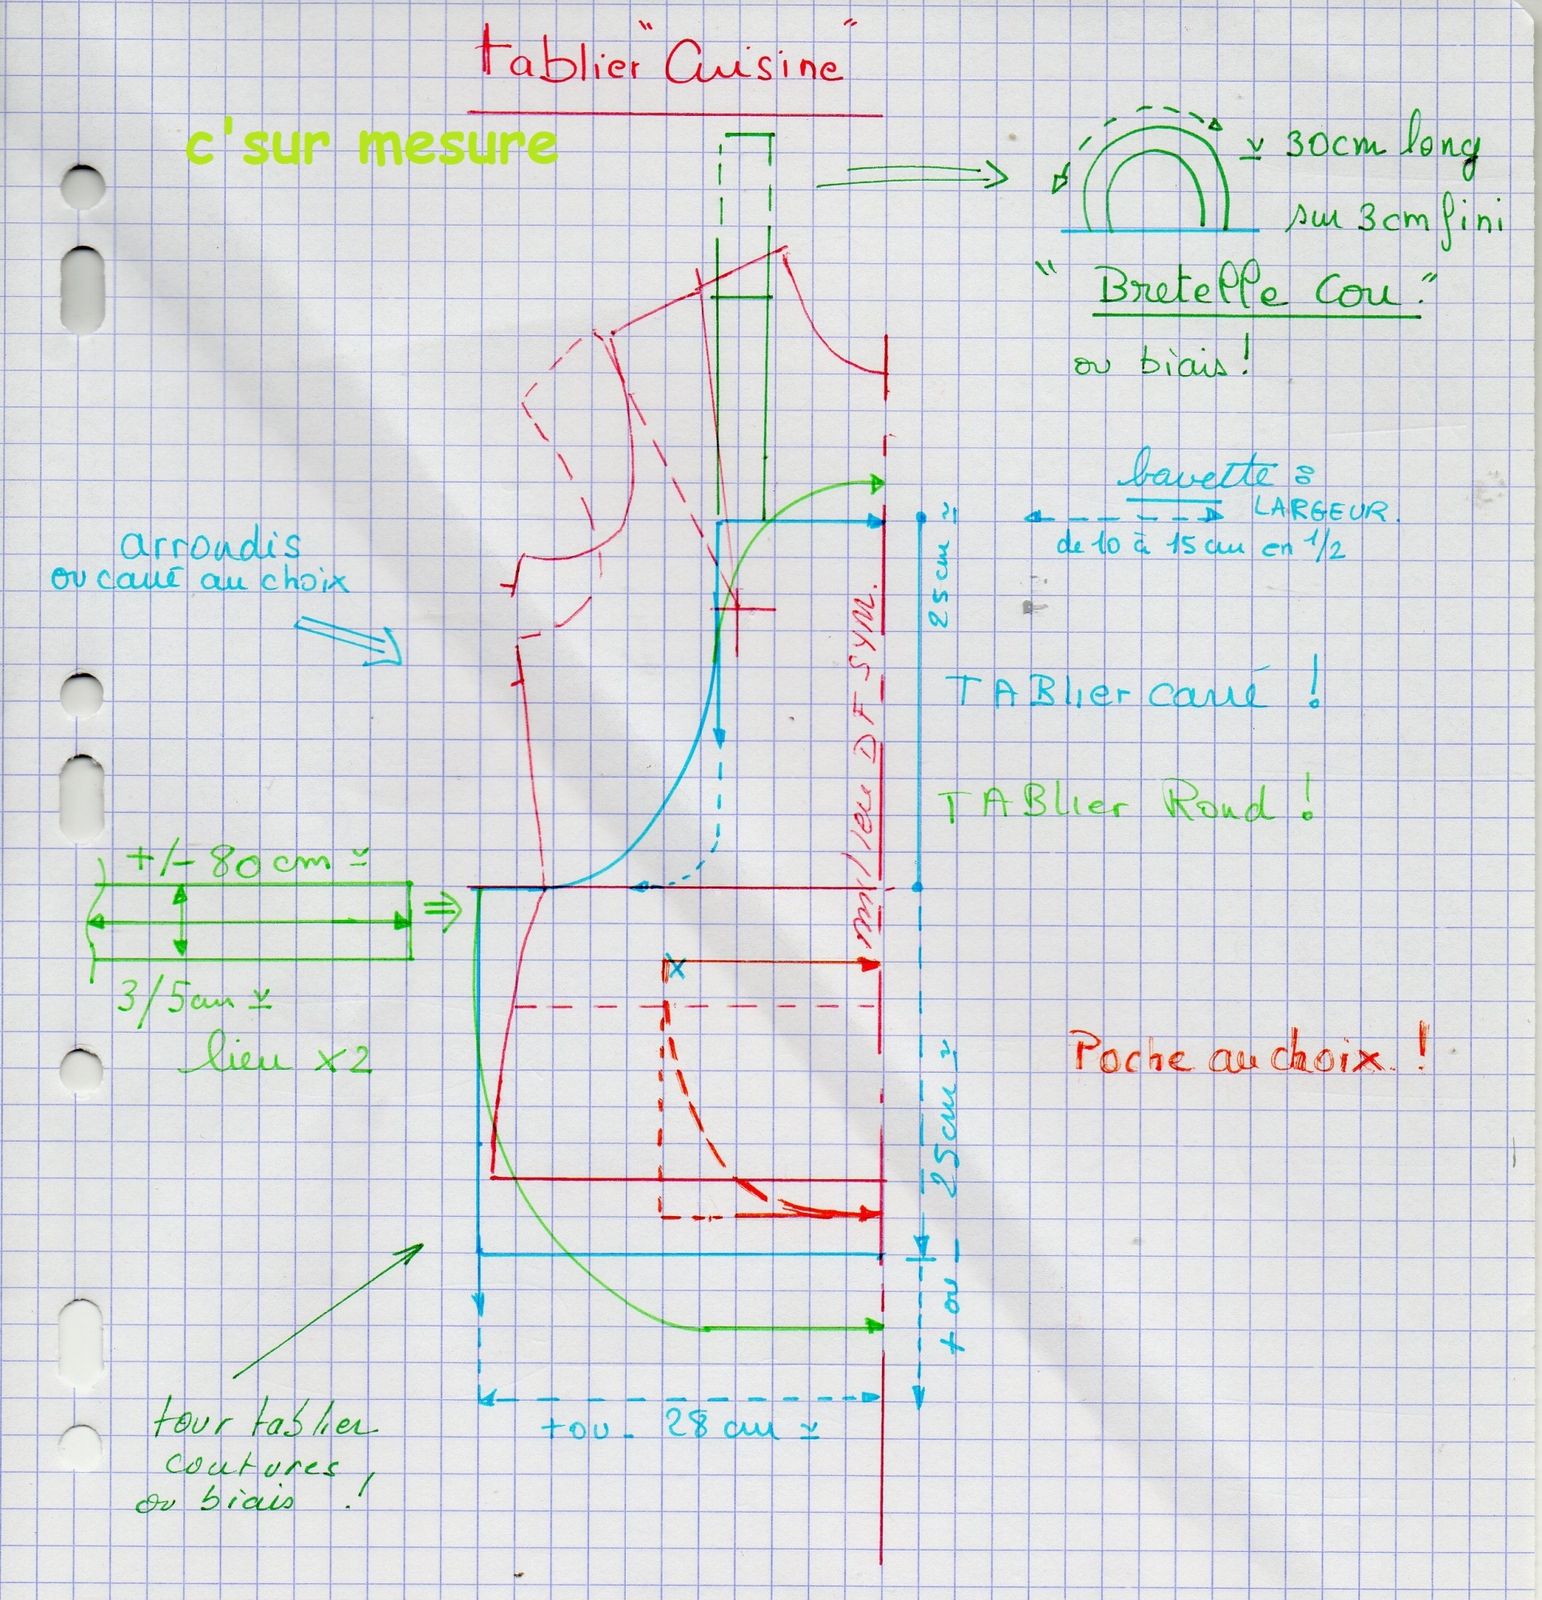 tablier "Cuisine"
c'sur mesure
⊻ 30cm long
sur 3cm fini
"Bretelle Cou."
ou biais!
bavette :
LARGEUR.
de 10 à 15 cm en 1/2
25cm ⊻
arrondis
ou carré au choix
milieu DF SYM.
TABlier carré !
TABlier Rond !
+/- 80cm ⊻
3/5cm ⊻
lieu x2
x
Poche au choix. !
25cm ⊻
+ ou -
+ ou - 28 cm ⊻
tour tablier
coutures
ou biais !